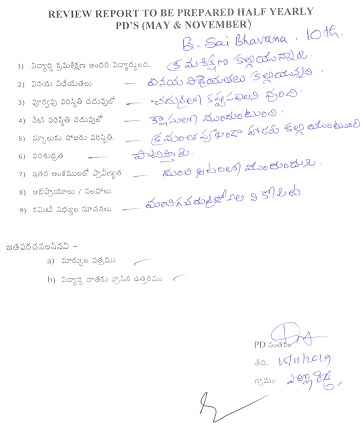 REVIEW REPORT TO BE PREPARED HALF YEARLY
PD'S (MAY & NOVEMBER)
B. Sai Bhavana. 10th.
1) విద్యార్థి క్రమశిక్షణ అందరి విద్యార్థులది. క్రమశిక్షణ కల్గియున్నది.
2) వినయ విధేయతలు వినయ విధేయతలు కల్గియున్నది.
3) పూర్వపు పరిస్థితి చదువులో చదువులో
4) నేటి పరిస్థితి చదువులో క్లాసులో ముందుంటుంది.
5) స్కూలుకు హాజరు పరిస్థితి. క్రమం తప్పకుండా హాజరు కల్గియుంటుంది
6) పరిశుభ్రత పాటిస్తారు.
7) ఇతర అంశములలో ప్రావీణ్యత మంచి ఆటలలో ముందుండును.
8) అభిప్రాయాలు / సలహాలు
9) కమిటీ సభ్యుల సూచనలు
జతపరచవలసినవి –
a) మార్కుల పత్రము
b) విద్యార్థి దాతకు వ్రాసిన ఉత్తరము
PD సంతకం
తేది. 15/11/2019
గ్రామం